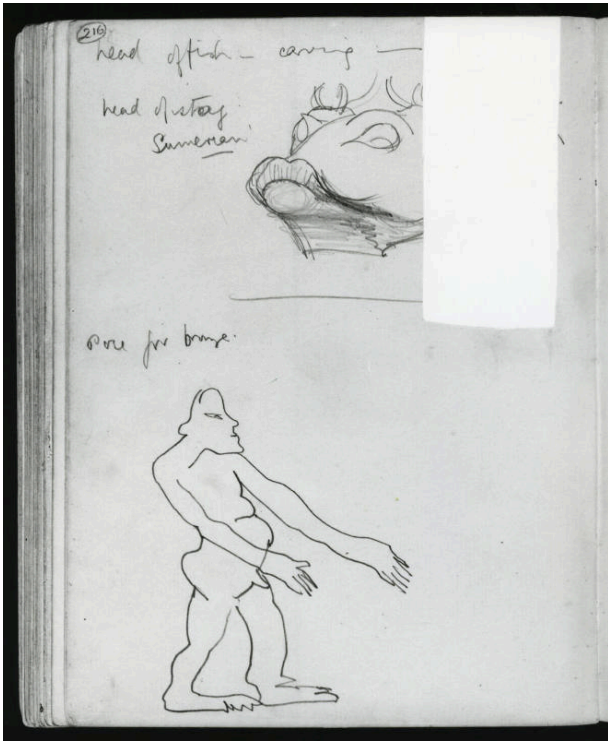 216
head of fish – carving —
head of stag
Sumerian
Pose for bronze.